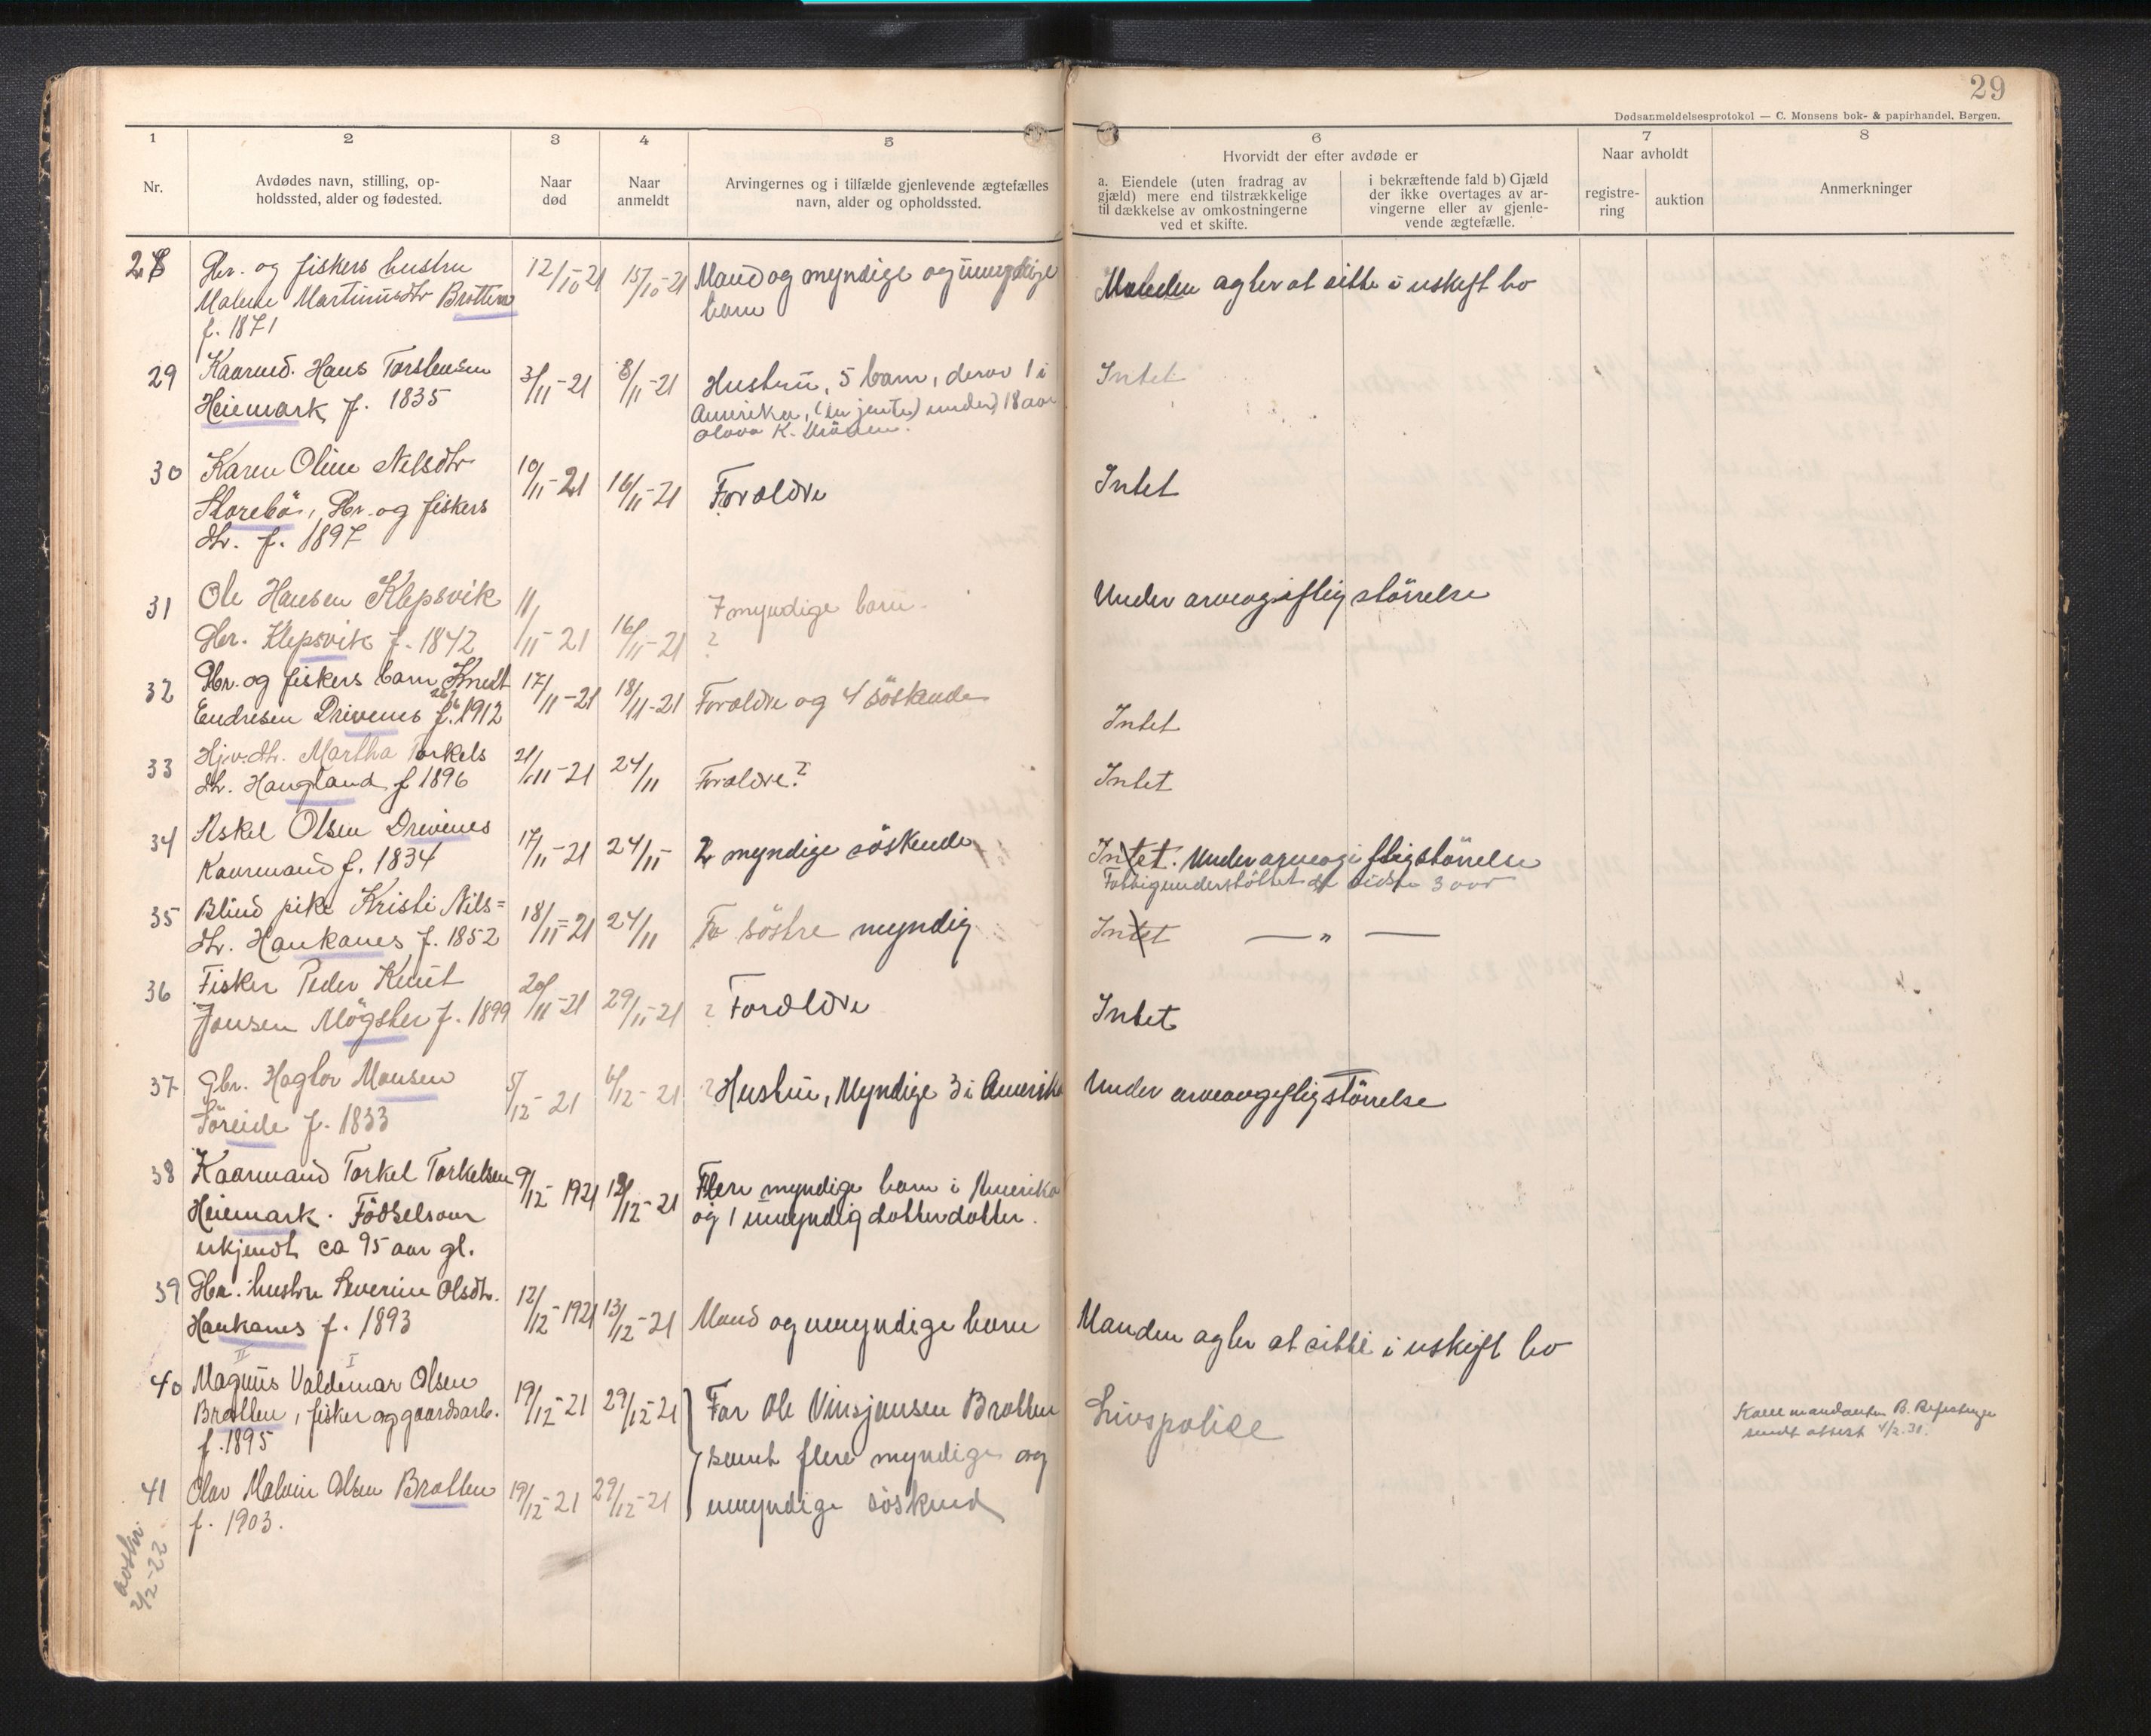 29
Dødsanmeldelsesprotokol — C. Monsens bok- & papirhandel, Bergen.
1 2 3 4 5 6 7 8
Nr.
Avdødes navn, stilling, op-
holdssted, alder og fødested.
Naar
død
Naar
anmeldt
Arvingernes og i tilfælde gjenlevende ægtefælles
navn, alder og opholdssted.
Hvorvidt der efter avdøde er
a. Eiendele (uten fradrag av
gjæld) mere end tilstrækkelige
til dækkelse av omkostningerne
ved et skifte.
i bekræftende fald b) Gjæld
der ikke overtages av ar-
vingerne eller av gjenle-
vende ægtefælle.
Naar avholdt
registre-
ring
auktion
Anmerkninger
28 Gbr. og fiskers hustru
Malene Martinusdtr Brotten
f. 1871
12/10-21 15/10-21
Mand og myndige og umyndige
barn
Manden agter at sitte i uskift bo
29 Kaarmd. Hans Torstensen
Heiemark f. 1835
3/11-21 8/11-21
Hustru, 5 barn, derav 1 i
Amerika, (en jente) under 18 aar
Intet
30 Karen Oline Nilsdtr
Storebö, Gbr. og fiskers
dtr. f. 1897
10/11-21 16/11-21
Forældre
Intet
31 Ole Hansen Klepsvik
Gbr. Klepsvik f. 1842
11/11-21 16/11-21
7 myndige barn.
?
Under arveavgiftlig störrelse
32 Gbr. og fiskers barn Knut
Endresen Drivenes f. 26/6 1912
17/11-21 18/11-21
Forældre og 4 söskende
Intet
33 Hjv. dtr. Martha Torkels
dtr. Haugland f 1896
21/11-21 24/11
Forældre?
Intet
34 Askel Olsen Drivenes
Kaarmand f. 1834
17/11-21 24/11
2 myndige söskende
Intet. Under arveavgiftlig störrelse
Fattigunderstöttet de sidste 3 aar
35 Blind pike Kristi Nils=
dtr. Haukanes f. 1852
18/11-21 24/11
To söstre myndig
Intet — " —
36 Fisker Peder Knut
Jonsen Mögster f. 1899
20/11-21 29/11-21
? Forældre
Intet
37 Gbr. Haglor Monsen
Söreide f. 1833
5/12-21 6/12-21
? Hustru, Myndige 3 i Amerika
Under arveavgiftlig störrelse
38 Kaarmand Torkel Torkelsen
Heiemark. Födselsaar
ukjendt ca 95 aar gl.
9/12-1921 12/12-21
Flere myndige barn i Amerika
og 1 umyndig datterdatter.
39 Gbr. hustru Severine Olsdtr.
Haukanes f. 1893
12/12-1921 13/12-21
Mand og umyndige barn
Manden agter at sitte i uskift bo
II I
40 Magnus Valdemar Olsen
Brotten, fisker og gaardsarb.
f. 1895
19/12-21 29/12-21
Far Ole Vinsjansen Brotten
samt flere myndige og
umyndige söskend
Livspolise
sendt attest 4/2.31.
41 Olav Malvin Olsen Brotten
f. 1903.
19/12-21 29/12-21
2/2-22